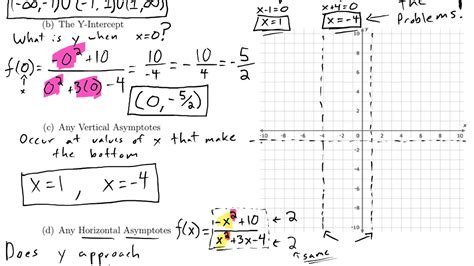 (-∞,-4)∪(-4,1)∪(1,∞)
x-1=0 x+4=0 the
x=1 x=-4 Problems.
(b) The Y-Intercept
What is y when x=0?
f(0) = (-0²+10)/(0²+3(0)-4) = 10/-4 = -10/4 = -5/2
x
(0, -5/2)
(c) Any Vertical Asymptotes
Occur at values of x that make
the bottom
x=1, x=-4
(d) Any Horizontal Asymptotes f(x) = (-x²+10)/(x²+3x-4) ← 2 ← 2
same
Does y approach
10
8
6
4
2
-10 -8 -6 -4 -2 2 4 6 8 10
-2
-4
-6
-8
-10